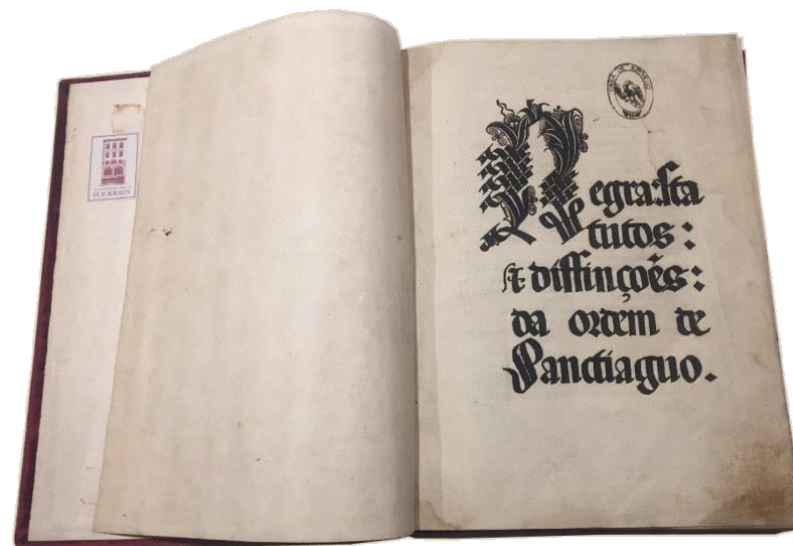 H. P. KRAUS
Regra: sta
tutos:
& diffinçoẽs:
da ordem de
Sanctiaguo.